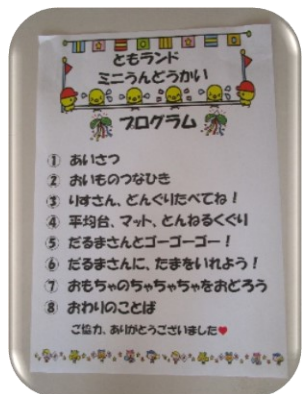 ともランド
ミニうんどうかい
プログラム
① あいさつ
② おいものつなひき
③ りすさん、どんぐりたべてね！
④ 平均台、マット、とんねるくぐり
⑤ だるまさんとゴーゴーゴー！
⑥ だるまさんに、たまをいれよう！
⑦ おもちゃのちゃちゃちゃをおどろう
⑧ おわりのことば
ご協力、ありがとうございました♥